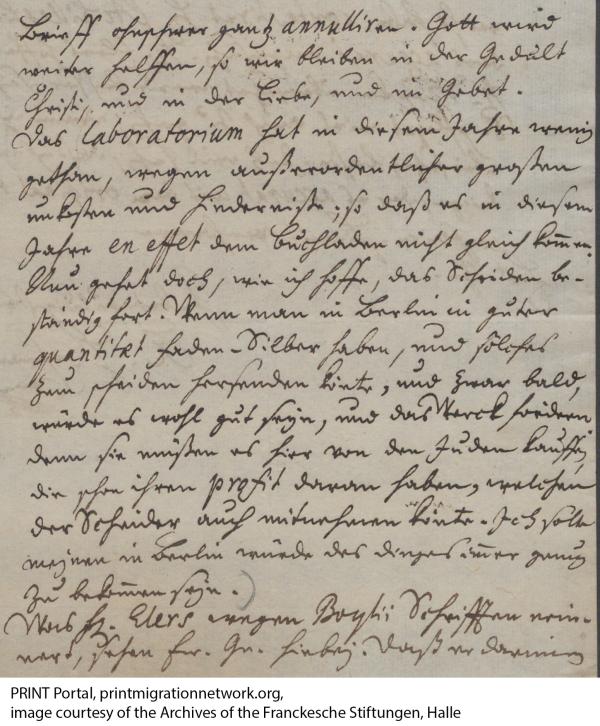 Brieff ohnschwer gantz annulliren. Gott wird
weiter helffen, so wir bleiben in der Gedult
Christi, und in der Liebe, und im Gebet.
Das Laboratorium hat in diesem Jahre wenig
gethan, wegen außerordentlicher großen
unkosten und Hindernisse; so daß es in diesem
Jahre en effet dem Buchladen nicht gleich kommen.
Nun gehet doch, wie ich hoffe, das Scheiden be-
ständig fort. Wenn man in Berlin in guter
quantität Faden-Silber haben, und solches
zum scheiden hersenden könte, und zwar bald,
würde es wohl gut seyn, und das Werck fördern
denn sie müßen es hier von den Juden kauffen,
die schon ihren profit daran haben, welchen
der Scheider auch mitnehmen könte. Ich solte
meynen in Berlin würde des dinges immer genug
zu bekommen seyn.
Was H. Elers wegen Boysii Schrifften erin-
nert, sehen Ew. Gn. hiebey. Daß er darinnen
PRINT Portal, printmigrationnetwork.org,
image courtesy of the Archives of the Franckesche Stiftungen, Halle